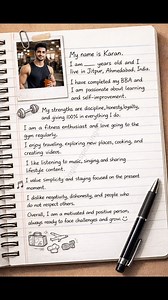 My name is Karan.
I am ___ years old and I
live in Jitpur, Ahmedabad, India.
I have completed my BBA and
I am passionate about learning
and self-improvement.
My strengths are discipline, honesty, loyalty,
and giving 100% in everything I do.
I am a fitness enthusiast and love going to the
gym regularly.
I enjoy traveling, exploring new places, cooking, and
creating videos.
I like listening to music, singing and sharing
lifestyle content.
I value simplicity and staying focused on the present
moment.
I dislike negativity, dishonesty, and people who
do not respect others.
Overall, I am a motivated and positive person,
always ready to face challenges and grow